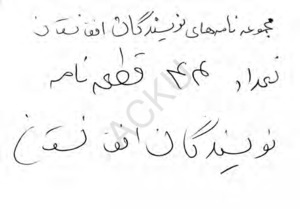 مجموعه نامه‌های نویسندگان افغانستان
تعداد ۴۴ قطعه نامه
نویسندگان افغانستان
ACKU